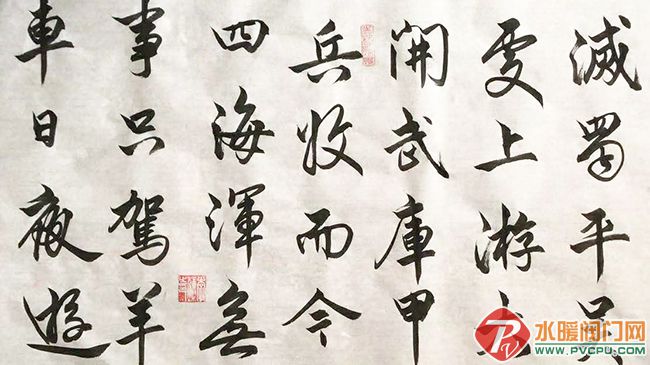 滅蜀平
上游
開武庫甲
兵收而今
四海渾無
事只駕羊
車日夜遊
水暖阀门网
WWW.PVCPU.COM